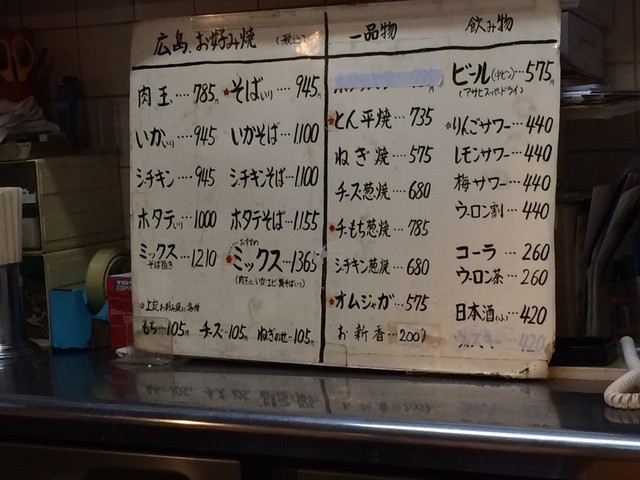 広島お好み焼 (税込)
肉玉…785円
そば入り…945円
いか入り…945
いかそば…1100
シーチキン…945
シーチキンそば…1100
ホタテ入り…1000
ホタテそば…1155
ミックス…1210
そば抜き
おすすめ
ミックス…1365
もち…105円 チーズ…105円 ねぎのせ…105円
一品物
とん平焼…735
ねぎ焼…575
チーズ葱焼…680
チーもち葱焼…785
シーチキン葱焼…680
オムジャガ…575
お新香…200円
飲み物
ビール(中ビン)…575円
(アサヒスーパードライ)
りんごサワー…440
レモンサワー…440
梅サワー…440
ウーロン割…440
コーラ…260
ウーロン茶…260
日本酒…420
ウィスキー…420